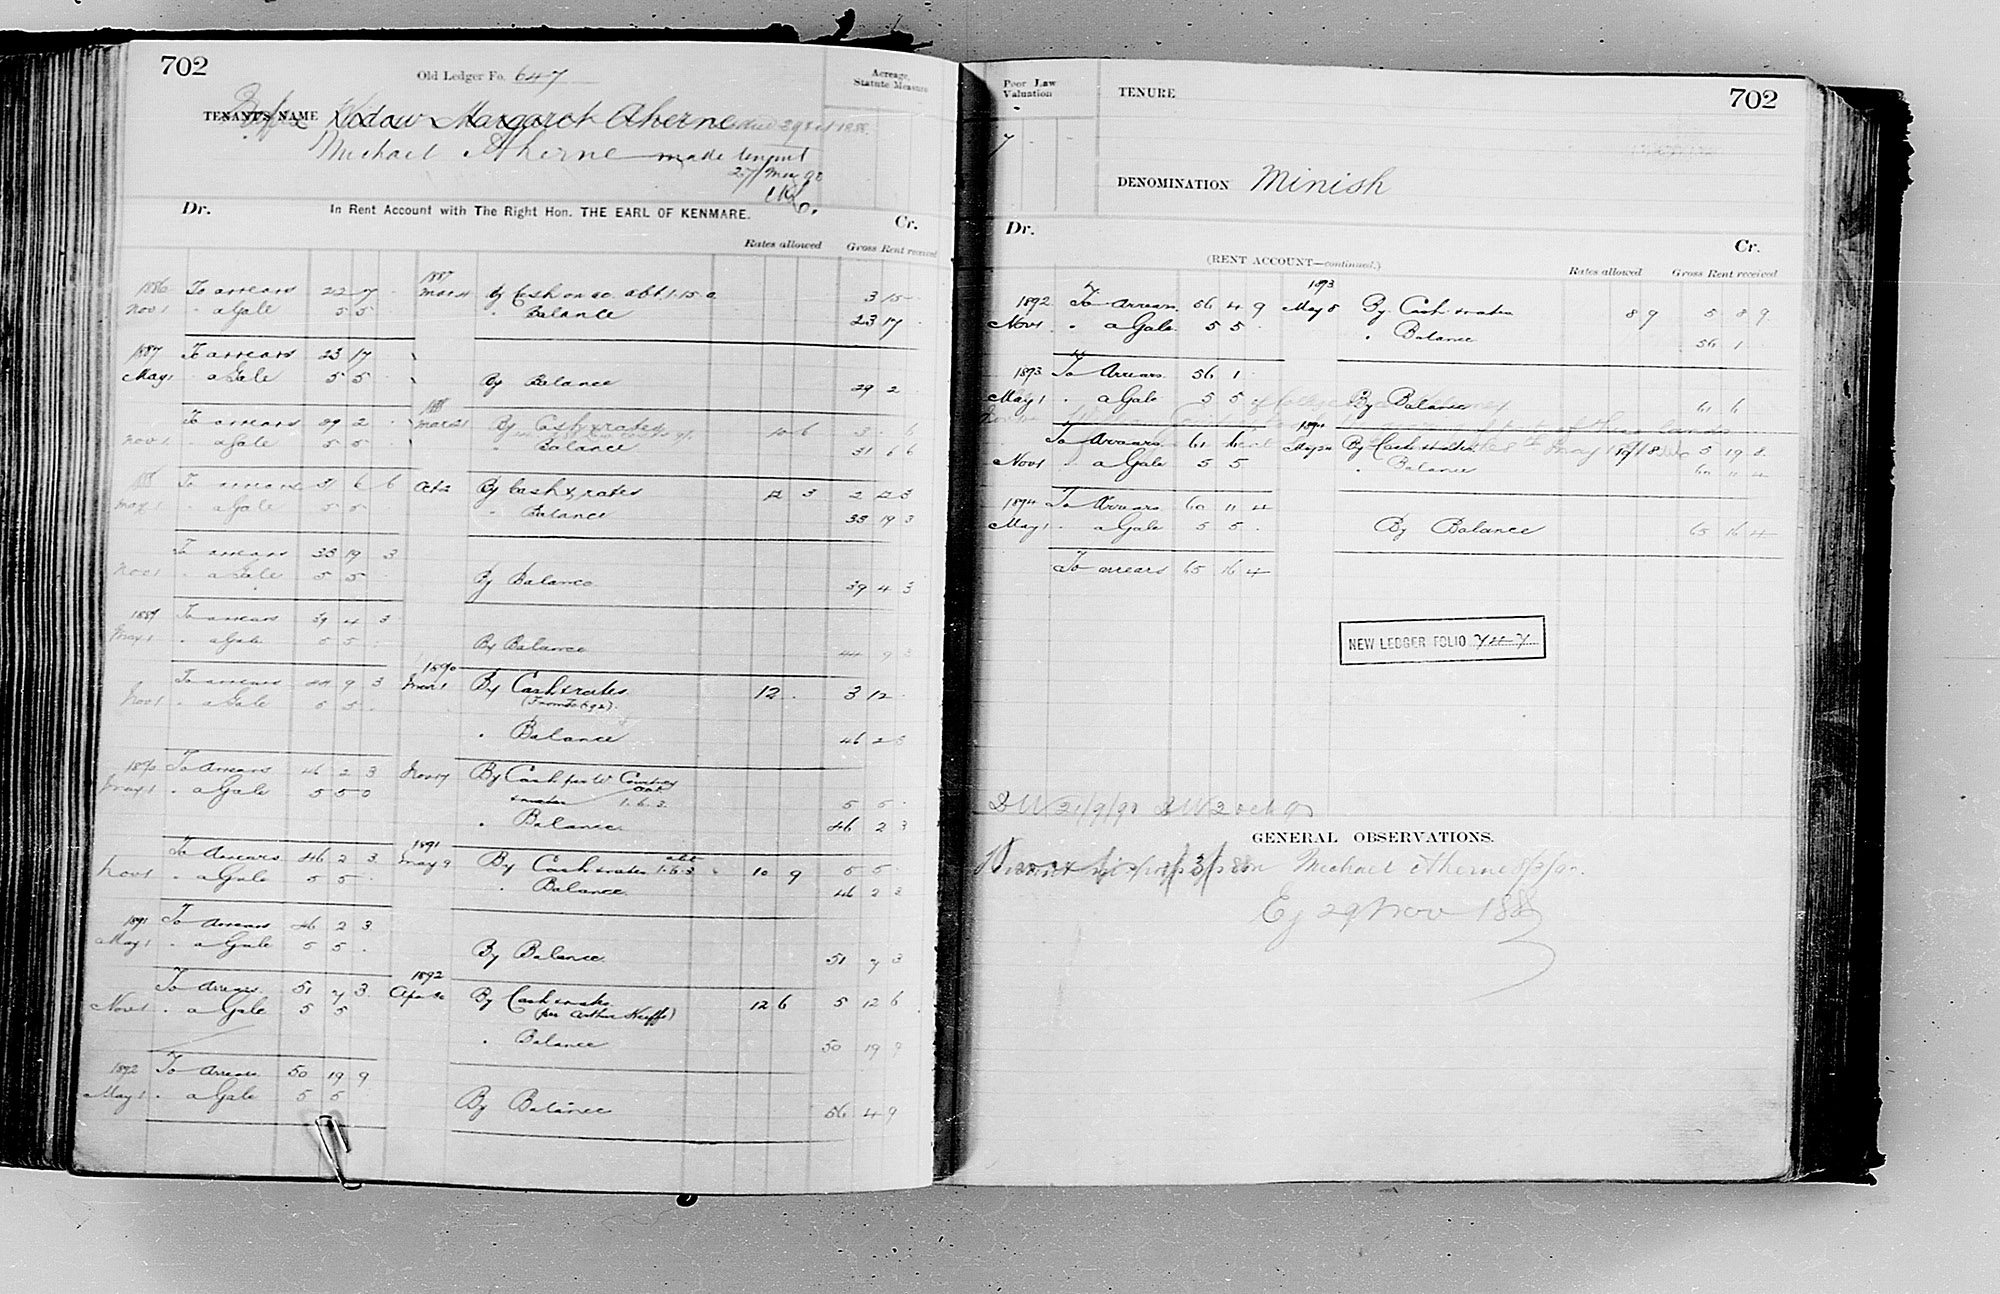 702
Old Ledger Fo. 647
Acreage, Statute Measure
TENANT'S NAME Widow Margaret Aherne
Michael Aherne made tenant
27/May 90
Dr. In Rent Account with The Right Hon. THE EARL OF KENMARE. Cr.
Rates allowed Gross Rent received
1886 To arrears 23 7 1887 Mar By Cash on ac. abt. 1.15.0 3 15
Nov 1 " a Gale 5 5 " Balance 23 17
1887 To arrears 23 17
May 1 a Gale 5 5 By Balance 29 2
To arrears 29 2 1888 Mar 21 By Cash & rates 10 6 3 6
Nov 1 a Gale 5 5 " Balance 31 6 6
1888 To arrears 31 6 6 Oct 2 By Cash & rates 12 3 2 12 3
May 1 " a Gale 5 5 " Balance 33 19 3
To arrears 33 19 3
Nov 1 " a Gale 5 5 By Balance 39 4 3
1889 To arrears 39 4 3
May 1 " a Gale 5 5 By Balance 44 9 3
To arrears 44 9 3 1890 Mar 1 By Cash & rates 12 3 12
Nov 1 " a Gale 5 5
" Balance 46 2 3
1890 To Arrears 46 2 3 Nov 17 By Cash per W Courtney
May 1 " a Gale 5 5 0 & rates 1.6.3 5 5
" Balance 46 2 3
To Arrears 46 2 3 1891 May 9 By Cash & rates abt 1.6.3 10 9 5 5
Nov 1 " a Gale 5 5 " Balance 46 2 3
1891 To Arrears 46 2 3
May 1 " a Gale 5 5 By Balance 51 7 3
To Arrears 51 7 3 1892 Apr By Cash & rates 12 6 5 12 6
Nov 1 " a Gale 5 5 (per Arthur Keeffe)
" Balance 50 19 9
1892 To Arrears 50 19 9
May 1 " a Gale 5 5 By Balance 56 4 9
Poor Law Valuation
TENURE
702
DENOMINATION Minish
Dr. Cr.
(RENT ACCOUNT—continued.)
Rates allowed Gross Rent received
1892 To Arrears 56 4 9 1893 May 8 By Cash & rates 8 9 5 8 9
Nov 1 " a Gale 5 5 " Balance 56 1
1893 To Arrears 56 1
May 1 " a Gale 5 5 By Balance 61 6
To Arrears 61 6 1894 May By Cash & rates 5 19 8
Nov 1 " a Gale 5 5 " Balance 60 11 4
1894 To Arrears 60 11 4
May 1 " a Gale 5 5 By Balance 65 16 4
To arrears 65 16 4
NEW LEDGER FOLIO 747
GENERAL OBSERVATIONS.
Michael Aherne
Ej 29 Nov 188